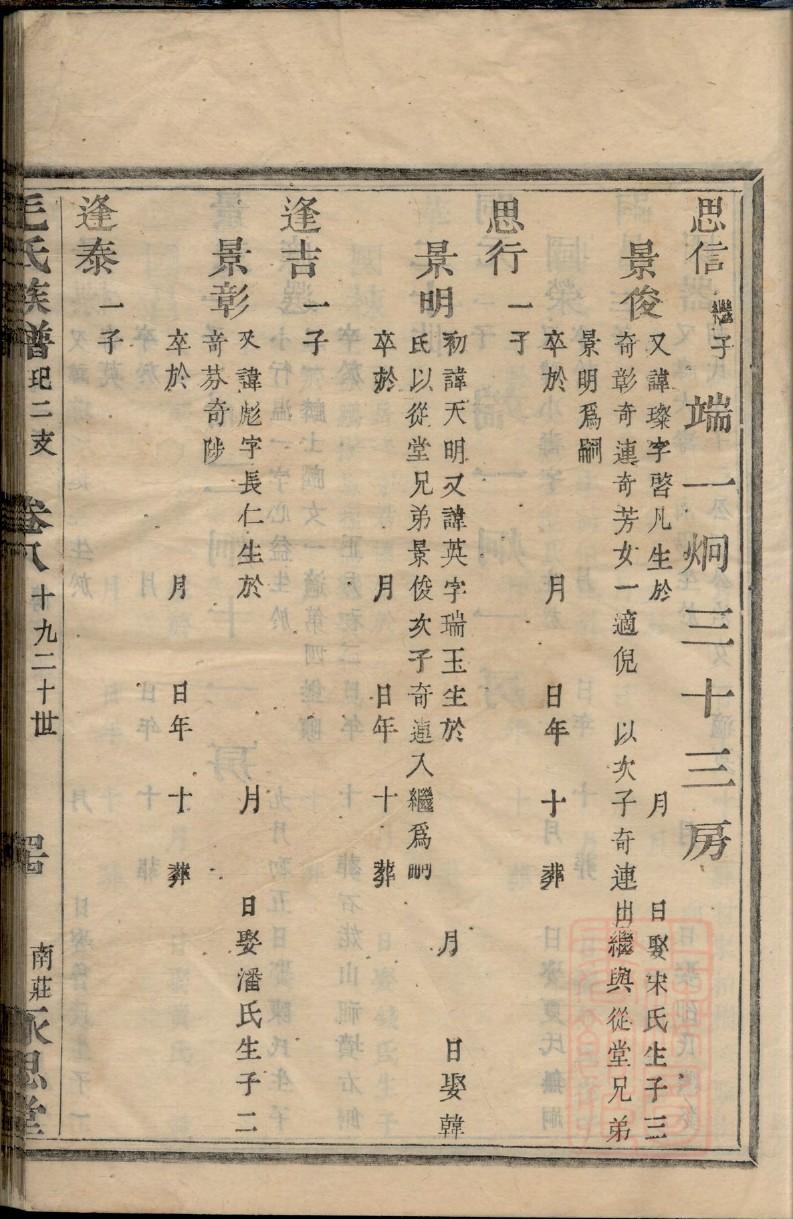 思信 繼子 端一炯三十三房
景俊 又諱璨字啓凡生於 月 日娶宋氏生子三
奇彰奇連奇芳女一適倪 以次子奇連出繼與從堂兄弟
景明爲嗣
思行 一子
卒於 月 日年 十 葬
景明 初諱天明又諱英字瑞玉生於 月 日娶韓
氏以從堂兄弟景俊次子奇連入繼爲嗣
卒於 月 日年 十 葬
逢吉 一子
景彰 又諱彪字長仁生於 月 日娶潘氏生子二
奇芬奇陟
卒於 月 日年 十 葬
逢泰 一子
毛氏族譜 玘二支 卷八 十九二十世 南莊永思堂